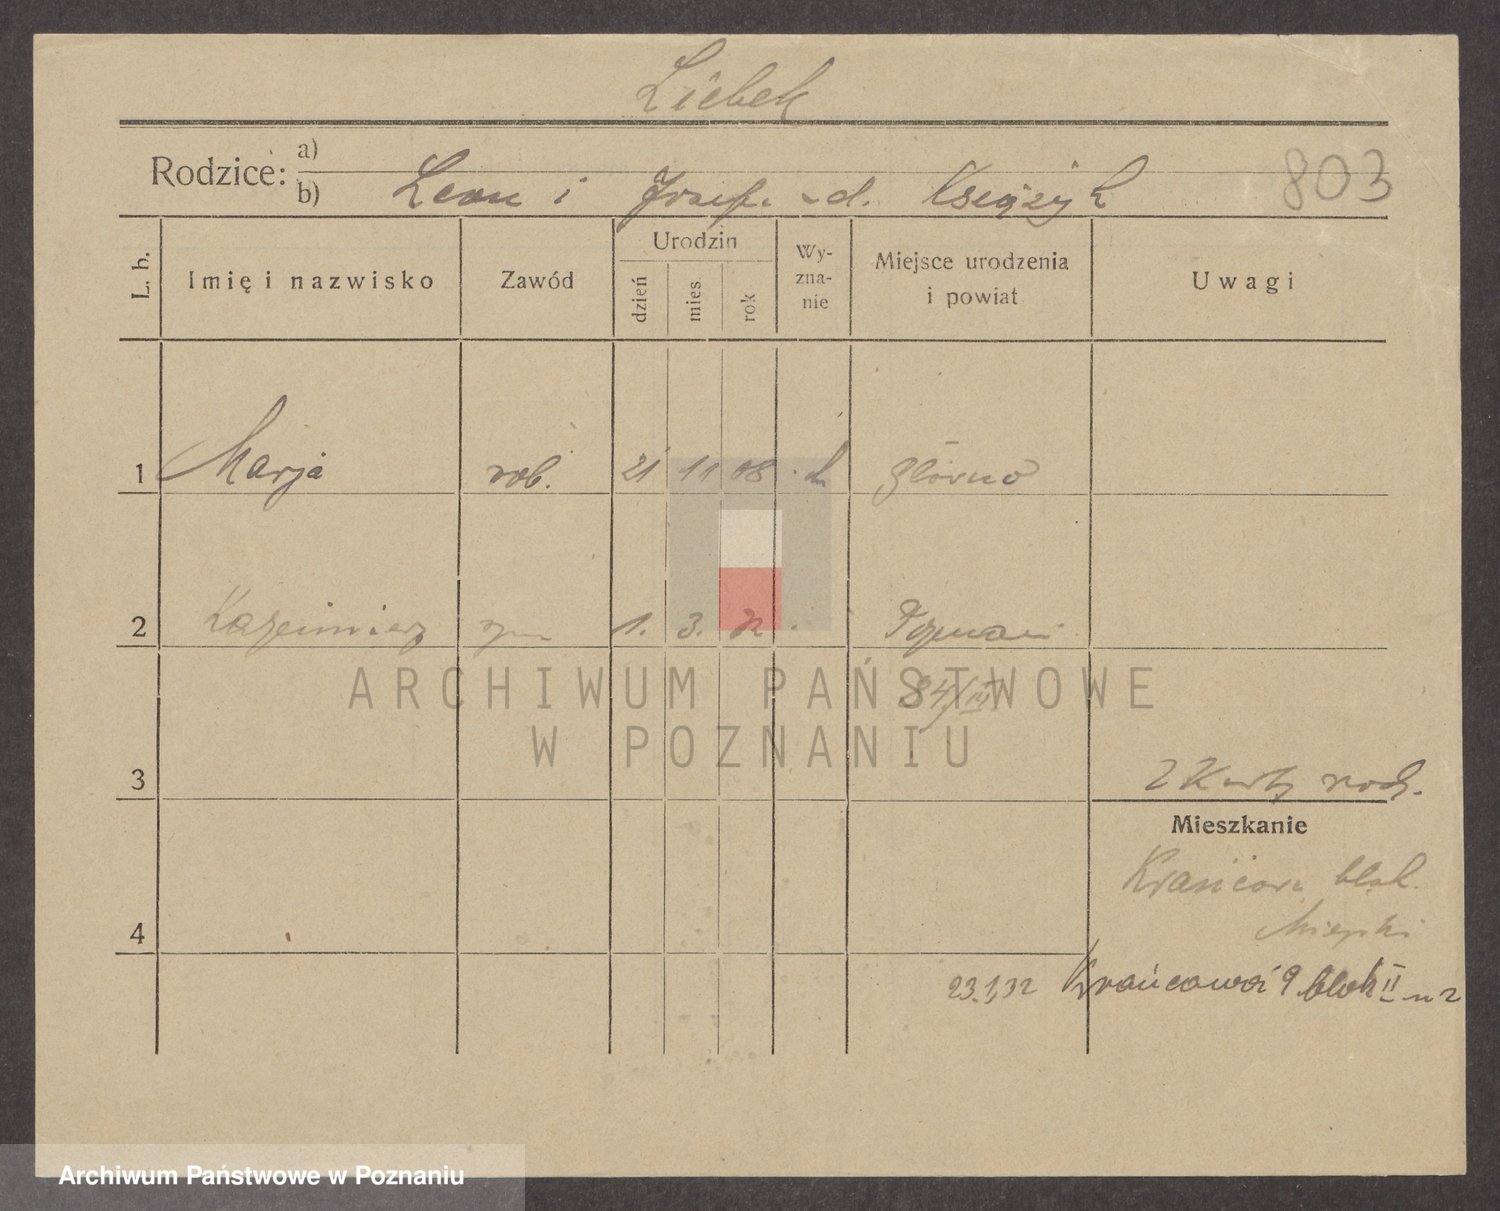 Liebek
Rodzice: a)
b) Leon i Josefa z d. Książyk
803
L. b.
Imię i nazwisko
Zawód
Urodzin
dzień
mies
rok
Wy-
zna-
nie
Miejsce urodzenia
i powiat
Uwagi
1 Marja rob. 21 11 08 Główno
2 Kazimierz syn 1. 3. 32 Poznań
84/III
ARCHIWUM PAŃSTWOWE
W POZNANIU
3
2 Karty rodz.
Mieszkanie
Krańcowa blok.
Miejski
4
23.1.32 Krańcowa 9 blok II m 2
Archiwum Państwowe w Poznaniu